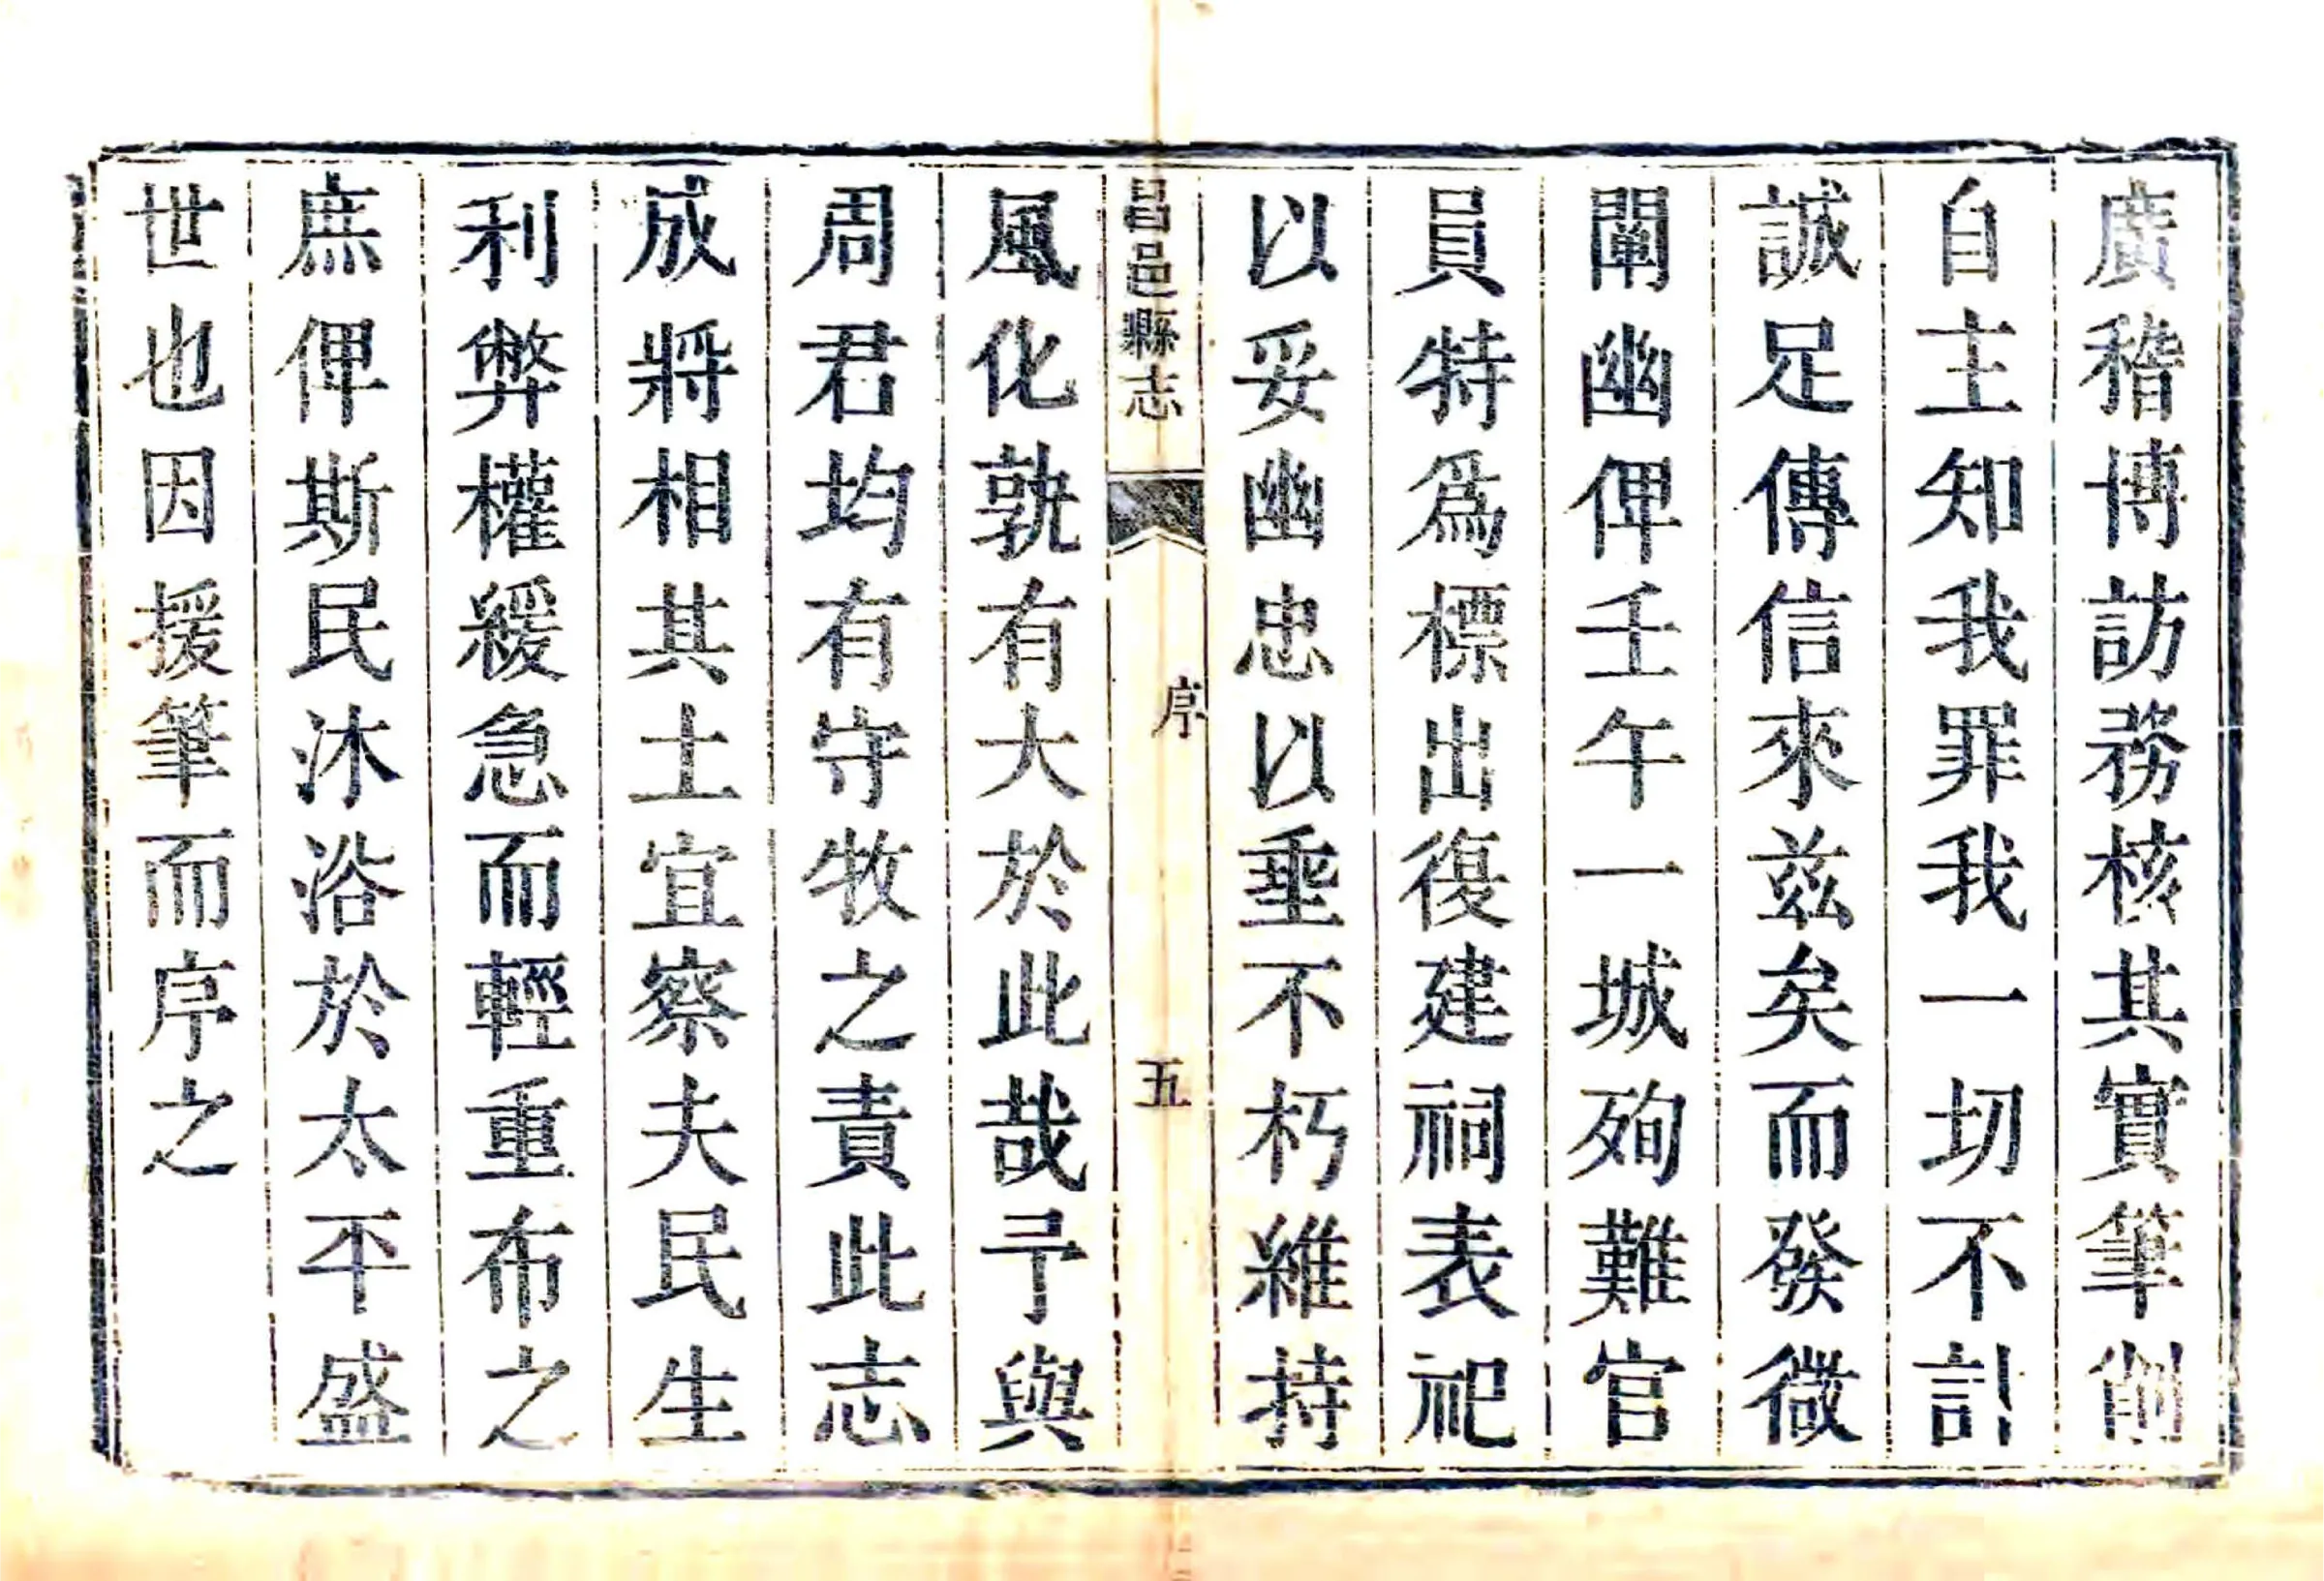 廣稽博訪務核其實筆削
自主知我罪我一切不計
誠足傳信來兹矣而發微
闡幽俾壬午一城殉難官
員特爲標出復建祠表祀
以妥幽忠以垂不朽維持
昌邑縣志
序
五
風化孰有大於此哉予與
周君均有守牧之責此志
成將相其土宜察夫民生
利弊權緩急而輕重布之
庶俾斯民沐浴於太平盛
世也因援筆而序之